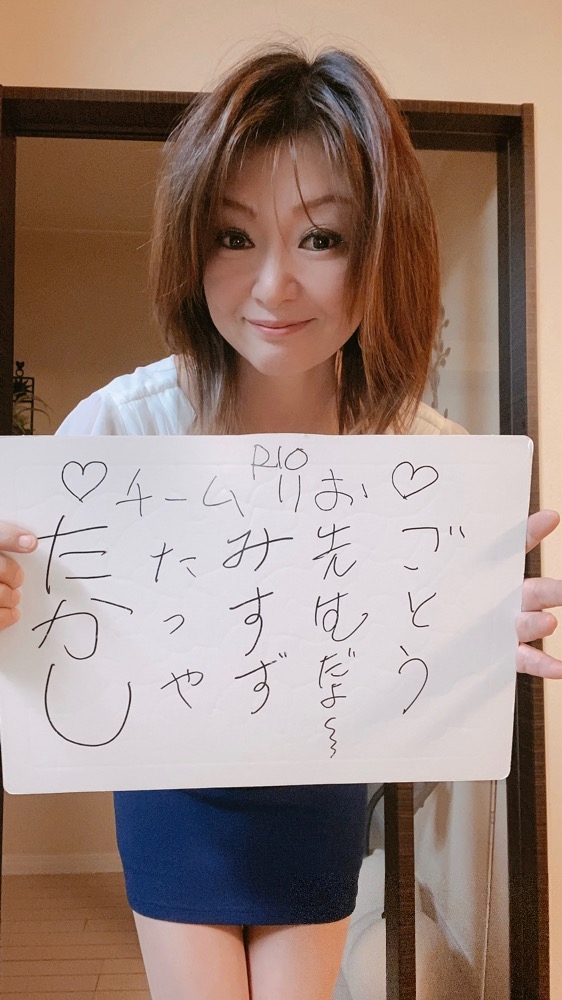 RIO
♡チームりお♡
ごとう
先はむだよ〜
みすず
たっや
たかし